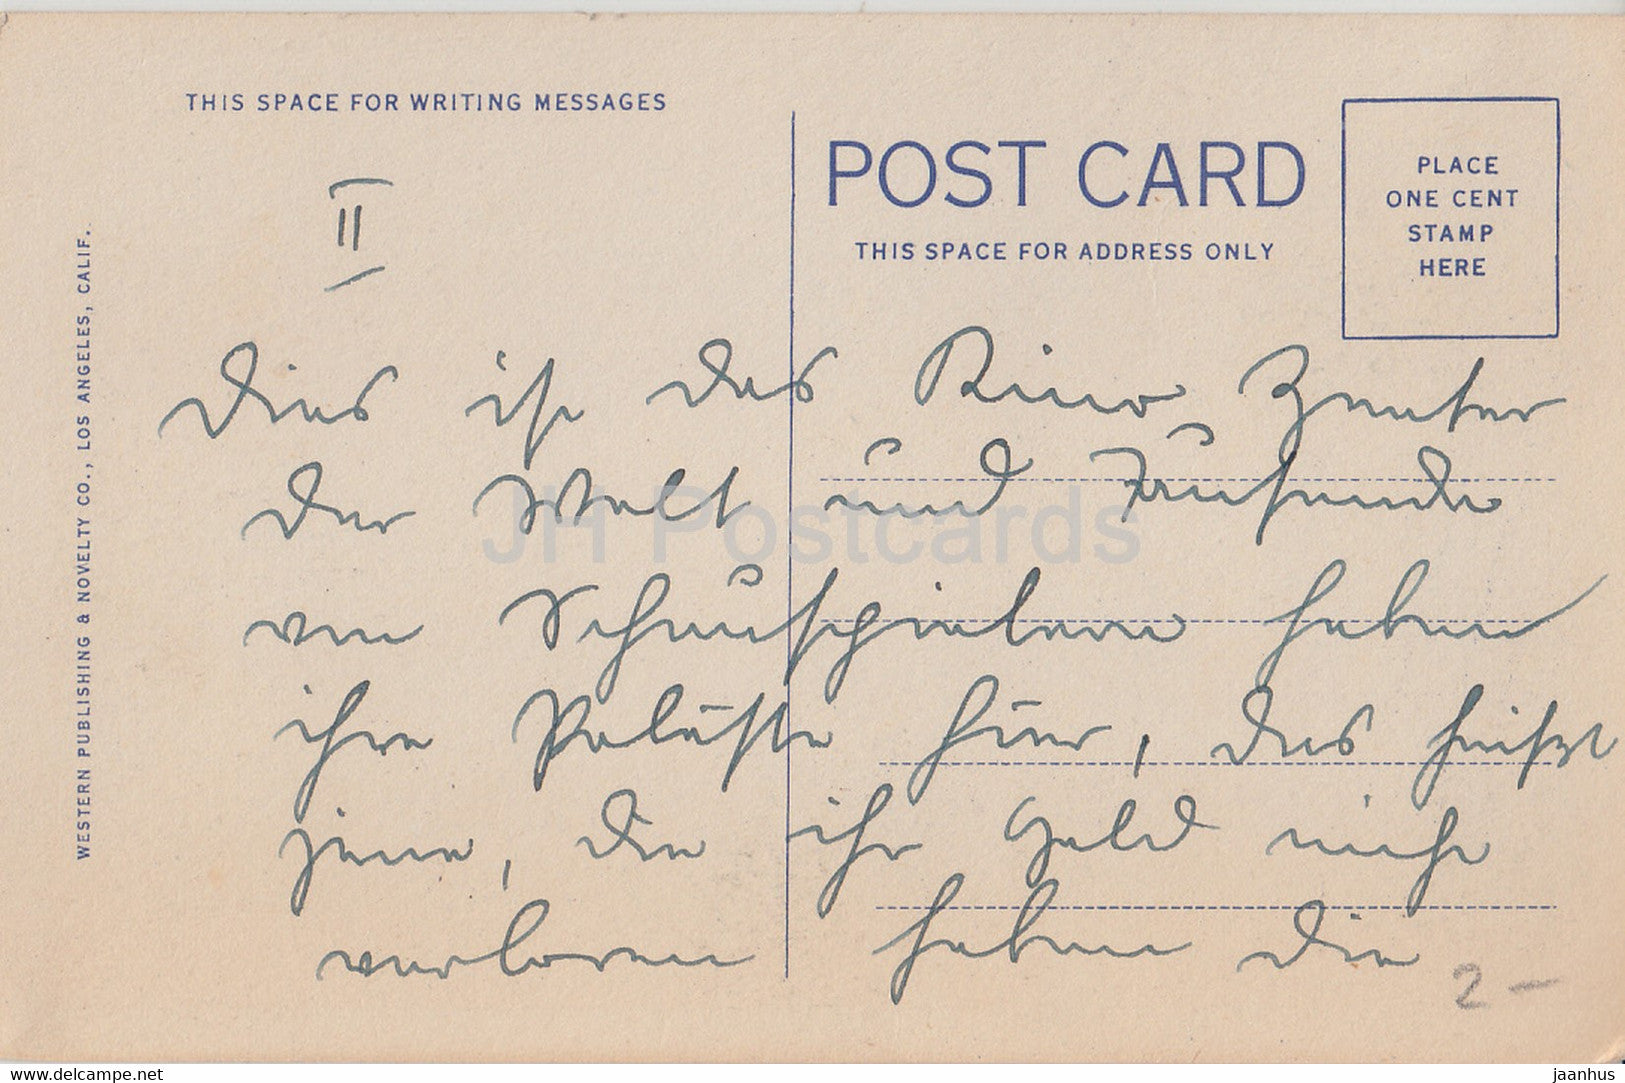 THIS SPACE FOR WRITING MESSAGES
POST CARD
THIS SPACE FOR ADDRESS ONLY
PLACE
ONE CENT
STAMP
HERE
WESTERN PUBLISHING & NOVELTY CO., LOS ANGELES, CALIF.
II
Dies ist das Kino Zenter
der Welt und Tausende
von Schauspielern haben
ihre Paläste hier, das heißt
jene, die ihr Geld nicht
verloren haben die
2 –
JH Postcards
www.delcampe.net
jaanhus